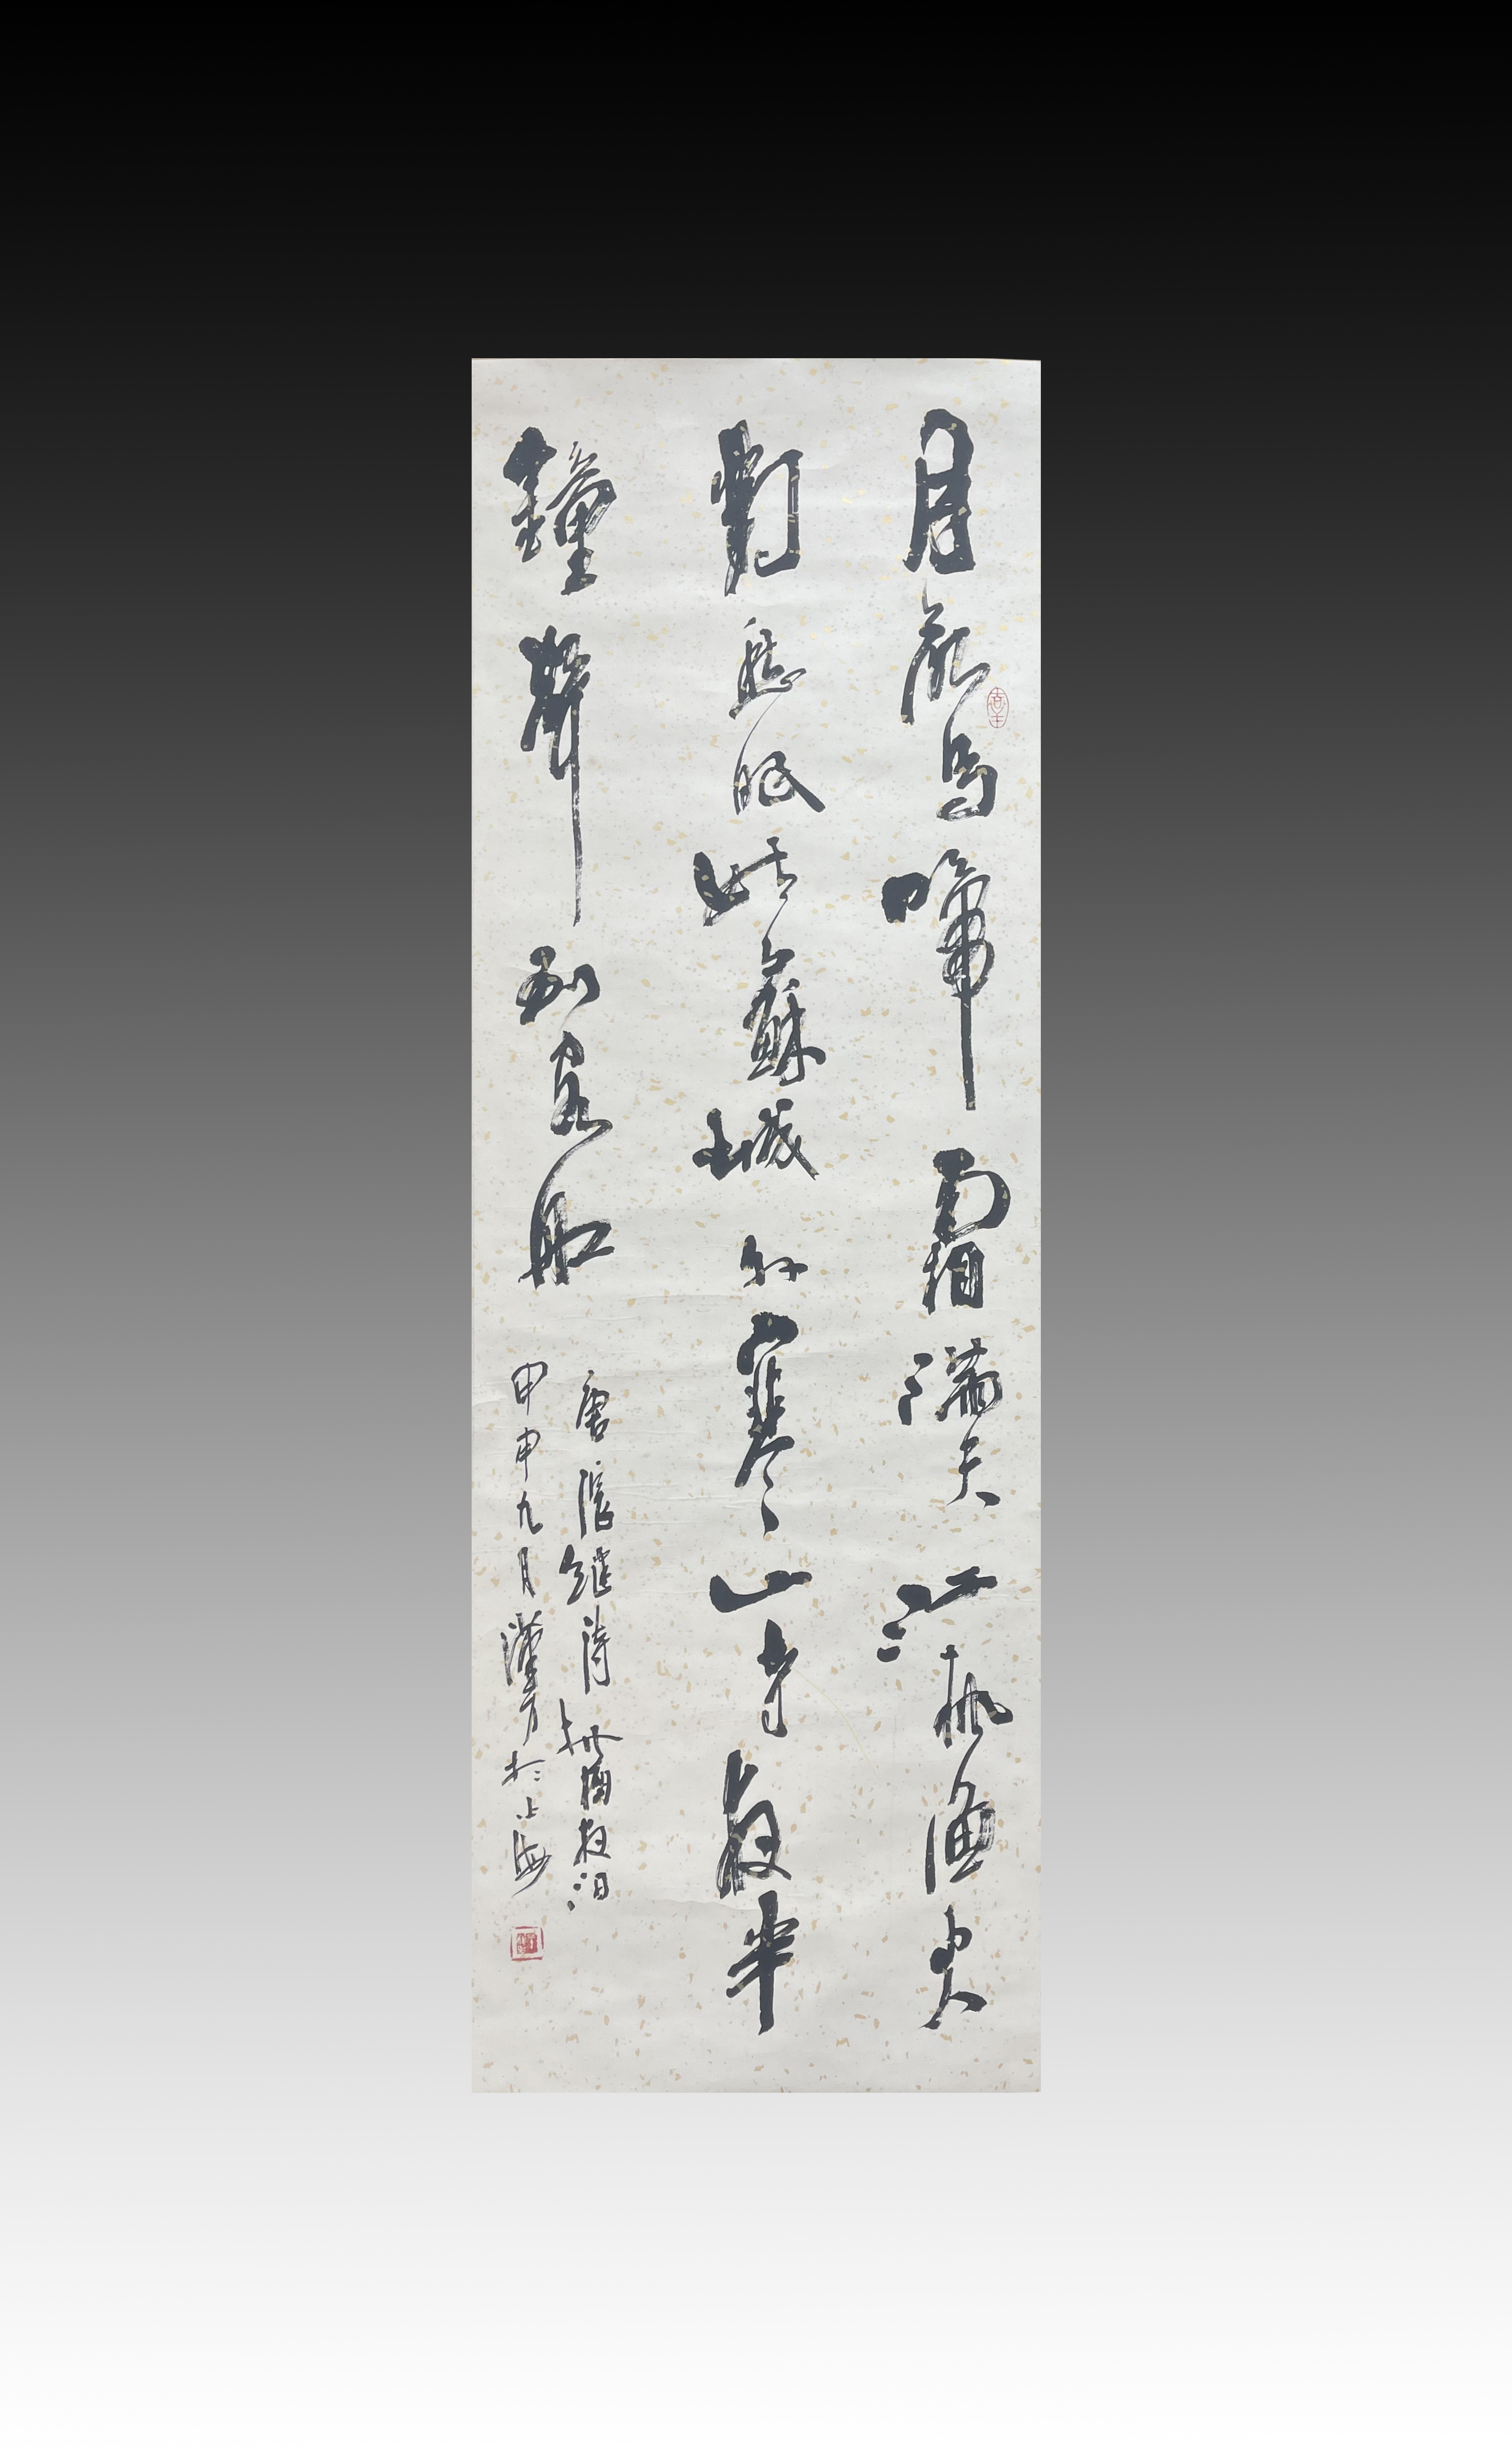 月落烏啼霜滿天江楓漁火
對愁眠姑蘇城外寒山寺夜半
鐘聲到客船
唐張继詩楓橋夜泊
甲申九月漢於上海